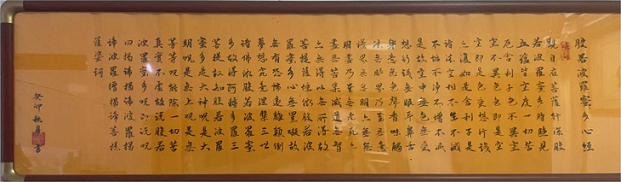 般若波羅蜜多心經
觀自在菩薩行深般
若波羅蜜多時照見
五蘊皆空度一切苦
厄舍利子色不異空
空不異色色即是空
空即是色受想行識
亦復如是舍利子是
諸法空相不生不滅
不垢不淨不增不減
是故空中無色無受
想行識無眼耳鼻舌
身意無色聲香味觸
法無眼界乃至無
意識界無無明亦無無
明盡乃至無老死
亦無得以無所得故
菩提薩埵依般若波
羅蜜多故心無罣礙故
有恐怖遠離顛倒
夢想究竟涅槃三世
諸佛依般若波羅蜜
多故得阿耨多羅
蜜多是大神咒是大
明咒是無上咒是無
等等咒能除一切苦
真實不虛故說般若
波羅蜜多咒即說咒
曰揭諦揭諦波羅揭
諦波羅僧揭諦菩提
薩婆訶
癸卯 書